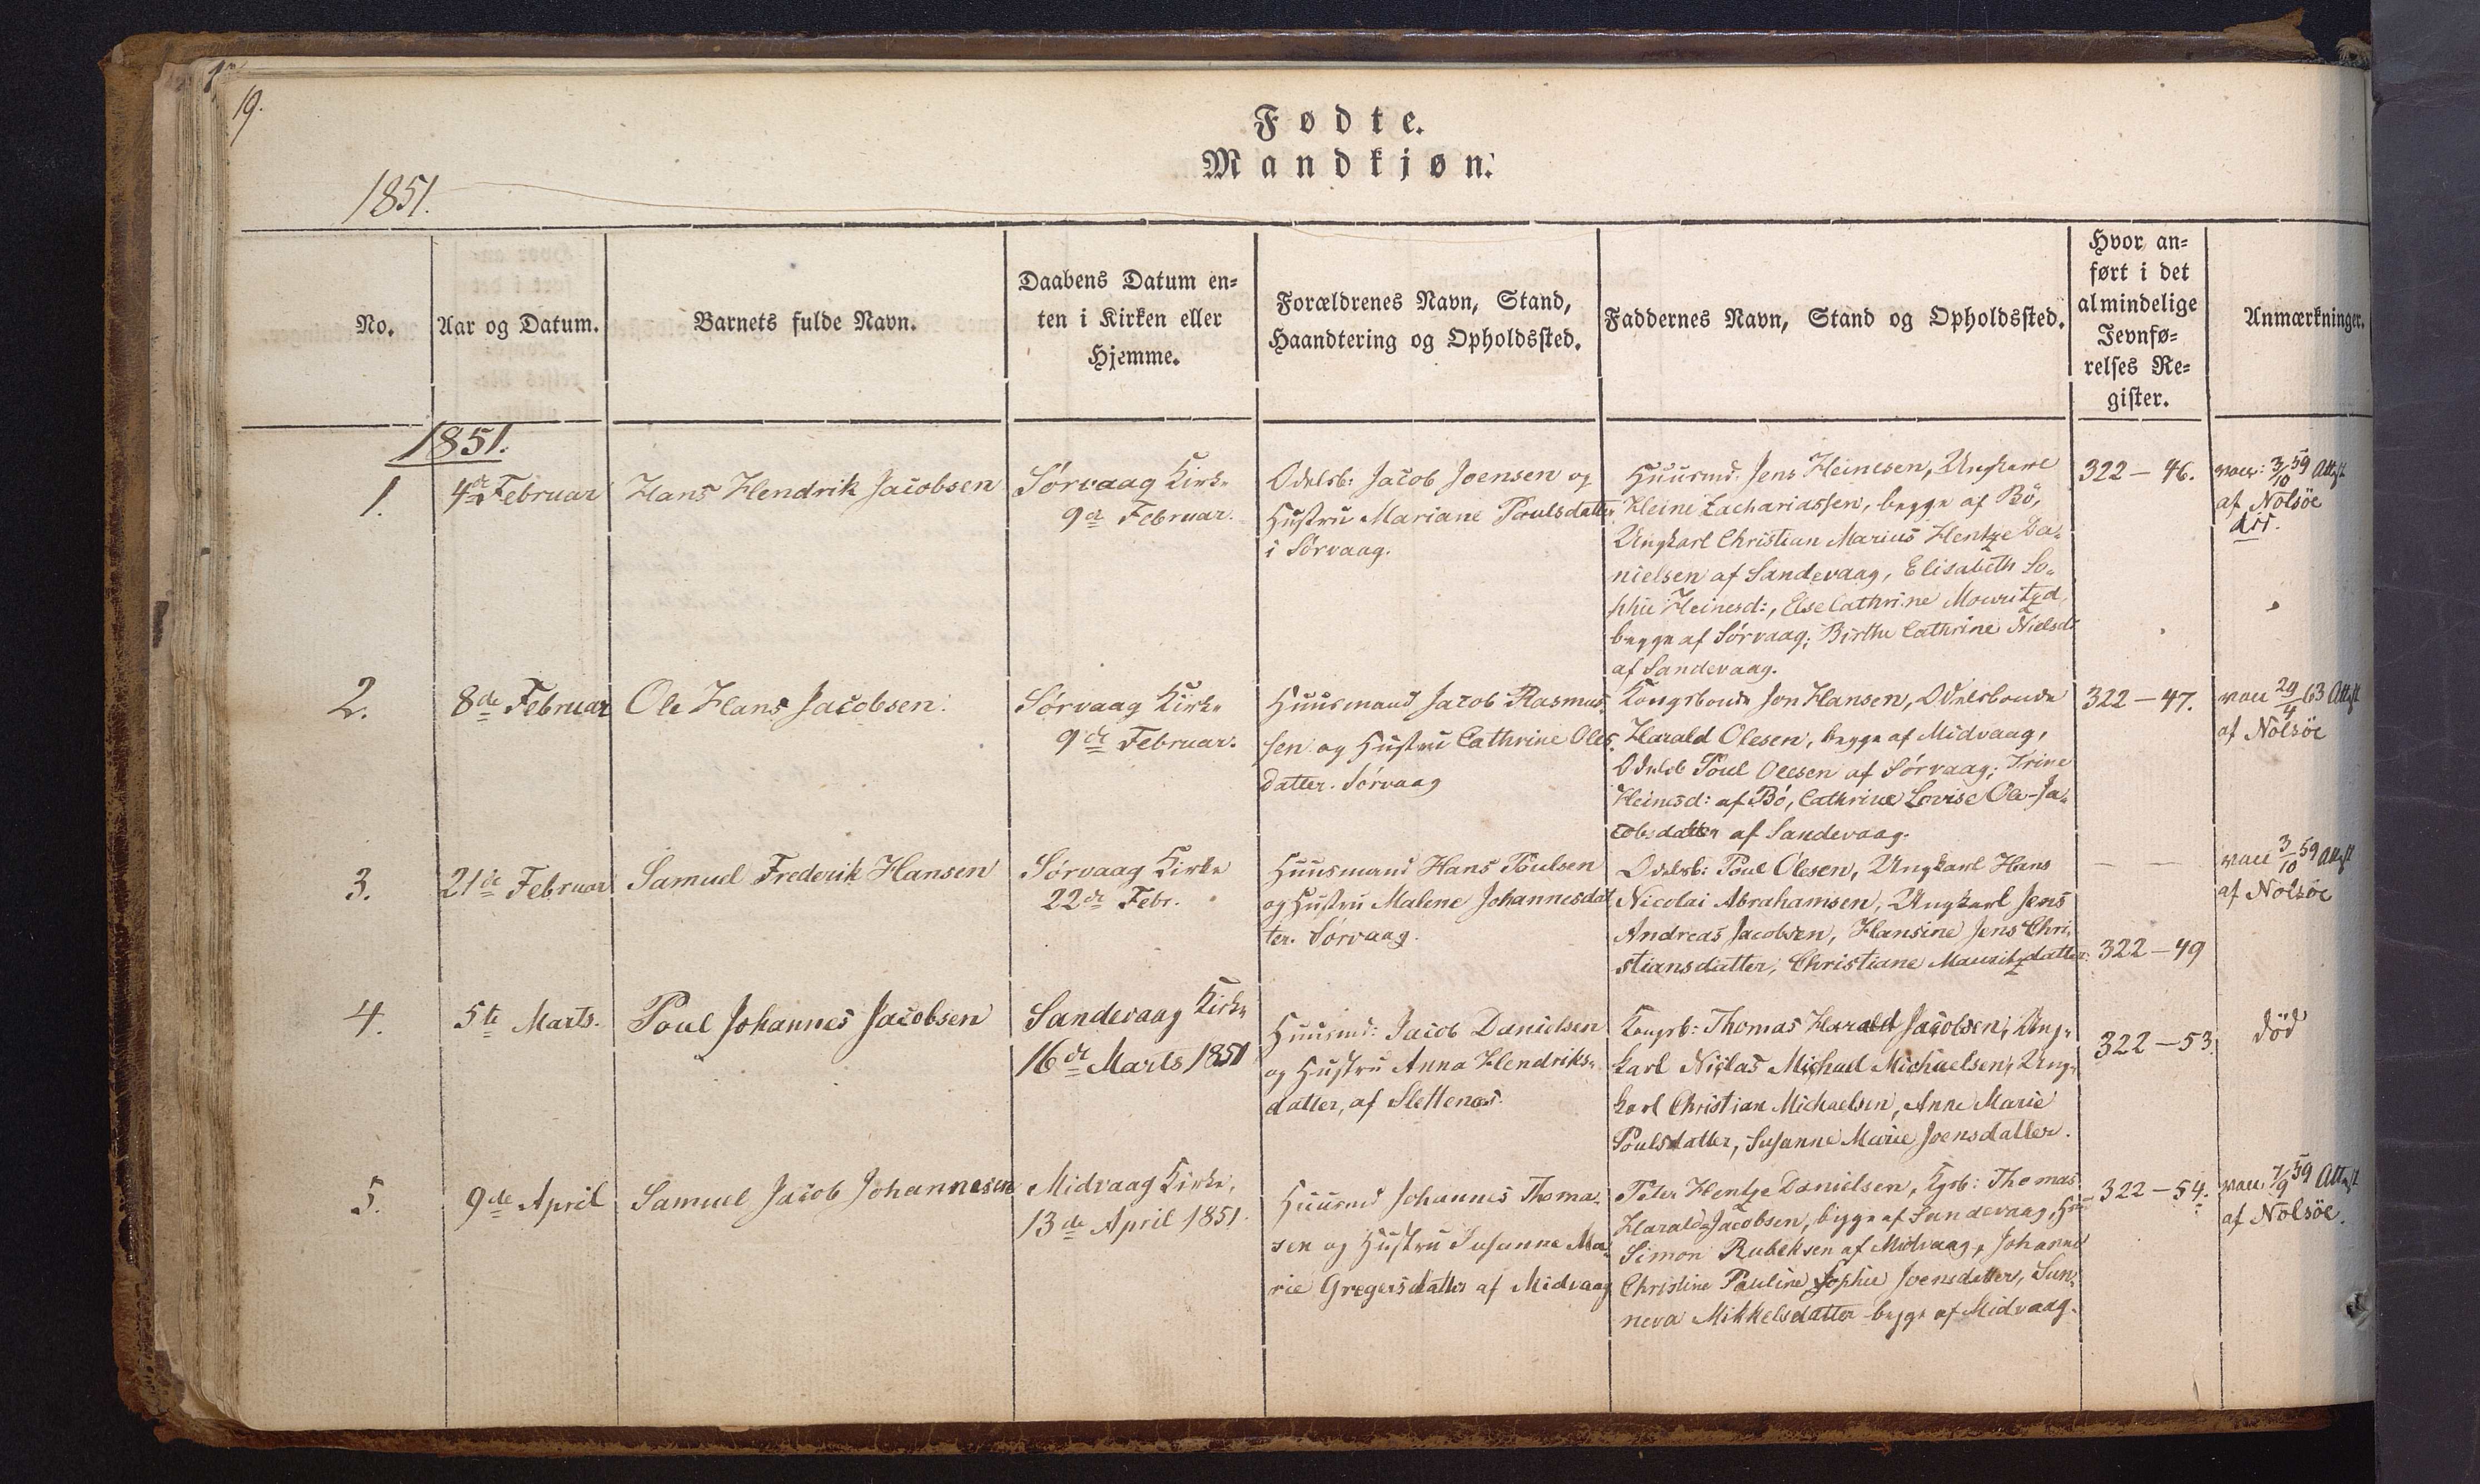 19.
Fødte.
Mandkjøn.
1851.
No.
Aar og Datum.
Barnets fulde Navn.
Daabens Datum en-
ten i Kirken eller
Hjemme.
Forældrenes Navn, Stand,
Haandtering og Opholdssted.
Faddernes Navn, Stand og Opholdssted.
Hvor an-
ført i det
almindelige
Jevnfø-
relses Re-
gister.
Anmærkninger.
1851.
1.
4de Februar
Hans Hendrik Jacobsen
Sörvaag Kirke
9de Februar.
Odelsb: Jacob Joensen og
Hustru Mariane Poulsdatter
i Sörvaag.
Huusmd. Jens Heinesen, Ungkarl
Heine Zachariassen, begge af Bö,
Ungkarl Christian Marius Hentze Da-
nielsen af Sandevaag, Elisabeth So-
phie Heinesd:, Else Cathrine Mouritzd,
begge af Sörvaag; Birthe Cathrine Nielsdr
af Sandevaag.
322 – 46.
vacc: 3/10 59 Attst
af Nolsöe
2.
8de Februar
Ole Hans Jacobsen.
Sörvaag Kirke
9de Februar.
Huusmand Jacob Rasmus-
sen og Hustru Cathrine Oles-
datter. Sörvaag
Kongsbonde Jon Hansen, Odelsbonde
Harald Olesen, begge af Midvaag,
Odelsb Poul Olesen af Sörvaag; Trine
Heinesd: af Bö, Cathrine Lovise Ole-Ja-
cobsdatter af Sandevaag.
322 – 47.
vacc 29/4 63 Attst
af Nolsöe
3.
21de Februar
Samuel Frederik Hansen
Sörvaag Kirke
22de Febr.
Huusmand Hans Poulsen
og Hustru Malene Johannesdat-
ter. Sörvaag.
Odelsb: Poul Olesen, Ungkarl Hans
Nicolai Abrahamsen, Ungkarl Jens
Andreas Jacobsen, Hansine Jens Chri-
stiansdatter, Christiane Mauritzdatter.
— —
322 – 49
vacc 3/10 59 Attst
af Nolsöe
4.
5te Marts.
Poul Johannes Jacobsen
Sandevaag Kirke
16de Marts 1851
Huusmd: Jacob Danielsen
og Hustru Anna Hendriks-
datter, af Slettenæs.
Kongsb: Thomas Harald Jacobsen, Ung-
karl Niclas Michael Michaelsen, Ung-
karl Christian Michaelsen, Anne Marie
Poulsdatter, Susanne Marie Joensdatter.
322 – 53.
död
5.
9de April
Samuel Jacob Johannesen
Midvaag Kirke,
13de April 1851.
Huusmd Johannes Thoma-
sen og Hustru Susanne Ma-
rie Gregersdatter af Midvaag
Peter Hentze Danielsen, Kgsb: Thomas
Harald Jacobsen, begge af Sandevaag,
Simon Rubeksen af Midvaag, Johanne
Christine Pauline Sophie Joensdatter, Sun-
neva Mikkelsdatter begge af Midvaag.
322 – 54.
vacc. 7/9 59 Attst
af Nolsöe.